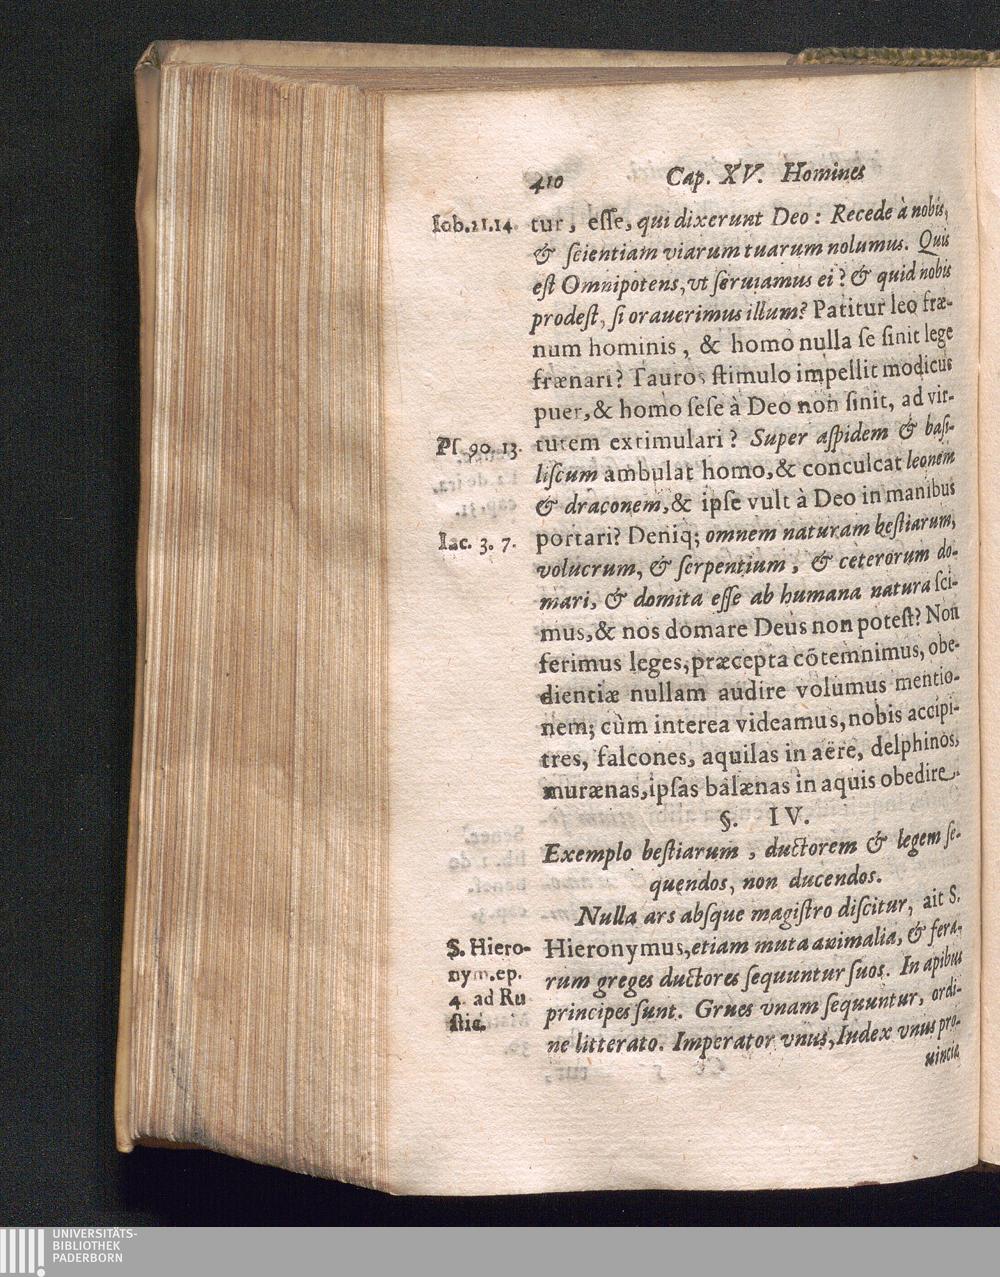 410 Cap. XV. Homines
Iob.21.14. tur, eſſe, qui dixerunt Deo: Recede à nobis,
& ſcientiam viarum tuarum nolumus. Quis
eſt Omnipotens, vt ſeruiamus ei? & quid nobis
prodeſt, ſi orauerimus illum? Patitur leo fræ-
num hominis, & homo nulla ſe ſinit lege
frænari? Tauros ſtimulo impellit modicus
puer, & homo ſeſe à Deo non ſinit, ad vir-
Pſ. 90. 13. tutem extimulari? Super aſpidem & baſi-
liſcum ambulat homo, & conculcat leonem
& draconem, & ipſe vult à Deo in manibus
Iac. 3. 7. portari? Deniq; omnem naturam beſtiarum,
volucrum, & ſerpentium, & ceterorum do-
mari, & domita eſſe ab humana natura ſci-
mus, & nos domare Deus non poteſt? Non
ferimus leges, præcepta cõtemnimus, obe-
dientiæ nullam audire volumus mentio-
nem; cùm interea videamus, nobis accipi-
tres, falcones, aquilas in aëre, delphinos,
murænas, ipſas balænas in aquis obedire.
§. IV.
Exemplo beſtiarum, ductorem & legem ſe-
quendos, non ducendos.
Nulla ars abſque magiſtro diſcitur, ait S.
S. Hiero- Hieronymus, etiam muta animalia, & fera-
nym. ep. rum greges ductores ſequuntur ſuos. In apibus
4. ad Ru principes ſunt. Grues vnam ſequuntur, ordi-
ſtic. ne litterato. Imperator vnus, Iudex vnus pro-
uinciæ
UNIVERSITÄTS-
BIBLIOTHEK
PADERBORN